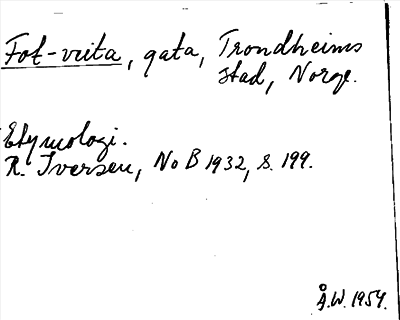 Fot-veita, gata, Trondheims
stad, Norge.
Etymologi.
R. Iversen, NoB 1932, s. 199.
Å.W. 1954.